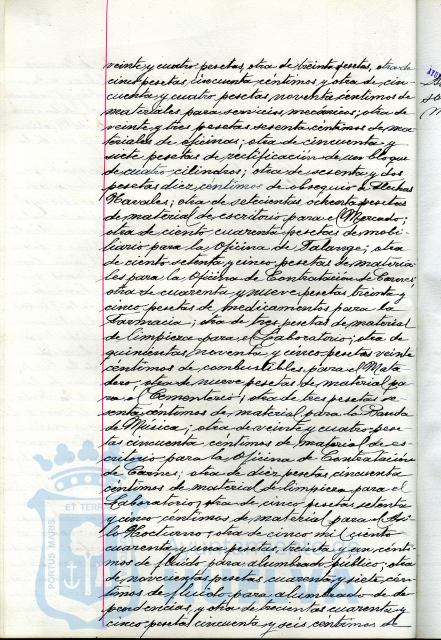 veinte y cuatro pesetas, otra de treinta pesetas, otra de
cinco pesetas cincuenta céntimos y otra de cin-
cuenta y cuatro pesetas, noventa céntimos de
materiales para servicios mecánicos; otra de
veinte y tres pesetas sesenta céntimos de ma-
teriales de oficinas; otra de cincuenta y
siete pesetas de rectificación de un bloque
de cuatro cilindros; otra de sesenta y dos
pesetas diez céntimos de obsequio a Flechas
Navales; otra de setecientas ochenta pesetas
de material de escritorio para el Mercado;
otra de ciento cuarenta pesetas de mobi-
liario para la Oficina de Falange; otra
de ciento setenta y cinco pesetas de materia-
les para la Oficina de Contratación de Carnes;
otra de cuarenta y nueve pesetas treinta y
cinco pesetas de medicamentos para la
Farmacia; otra de tres pesetas de material
de limpieza para el Laboratorio; otra de
quinientas noventa y cinco pesetas veinte
céntimos de combustibles para el Mata
dero; otra de nueve pesetas de material pa-
ra el Cementerio; otra de tres pesetas se
senta céntimos de material para la Banda
de Música; otra de veinte y cuatro pese-
tas cincuenta céntimos de material de es-
critorio para la Oficina de Contratación
de Carnes; otra de diez pesetas cincuenta
céntimos de material de limpieza para el
Laboratorio; otra de cinco pesetas setenta
y cinco céntimos de material para el Asi-
lo Nocturno; otra de cinco mil ciento
cuarenta y una pesetas treinta y un cénti-
mos de fluido para alumbrado público; otra
de novecientas pesetas cuarenta y siete cén-
timos de fluido para alumbrado de de-
pendencias, y otra de trescientas cuarenta y
cinco pesetas cincuenta y seis céntimos de
PORTUS MARIS
ET TERRA
Ayuntamiento de